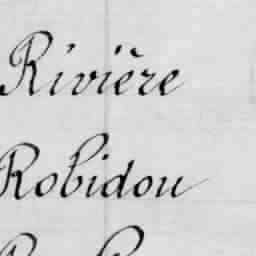 Rivière
Robidou